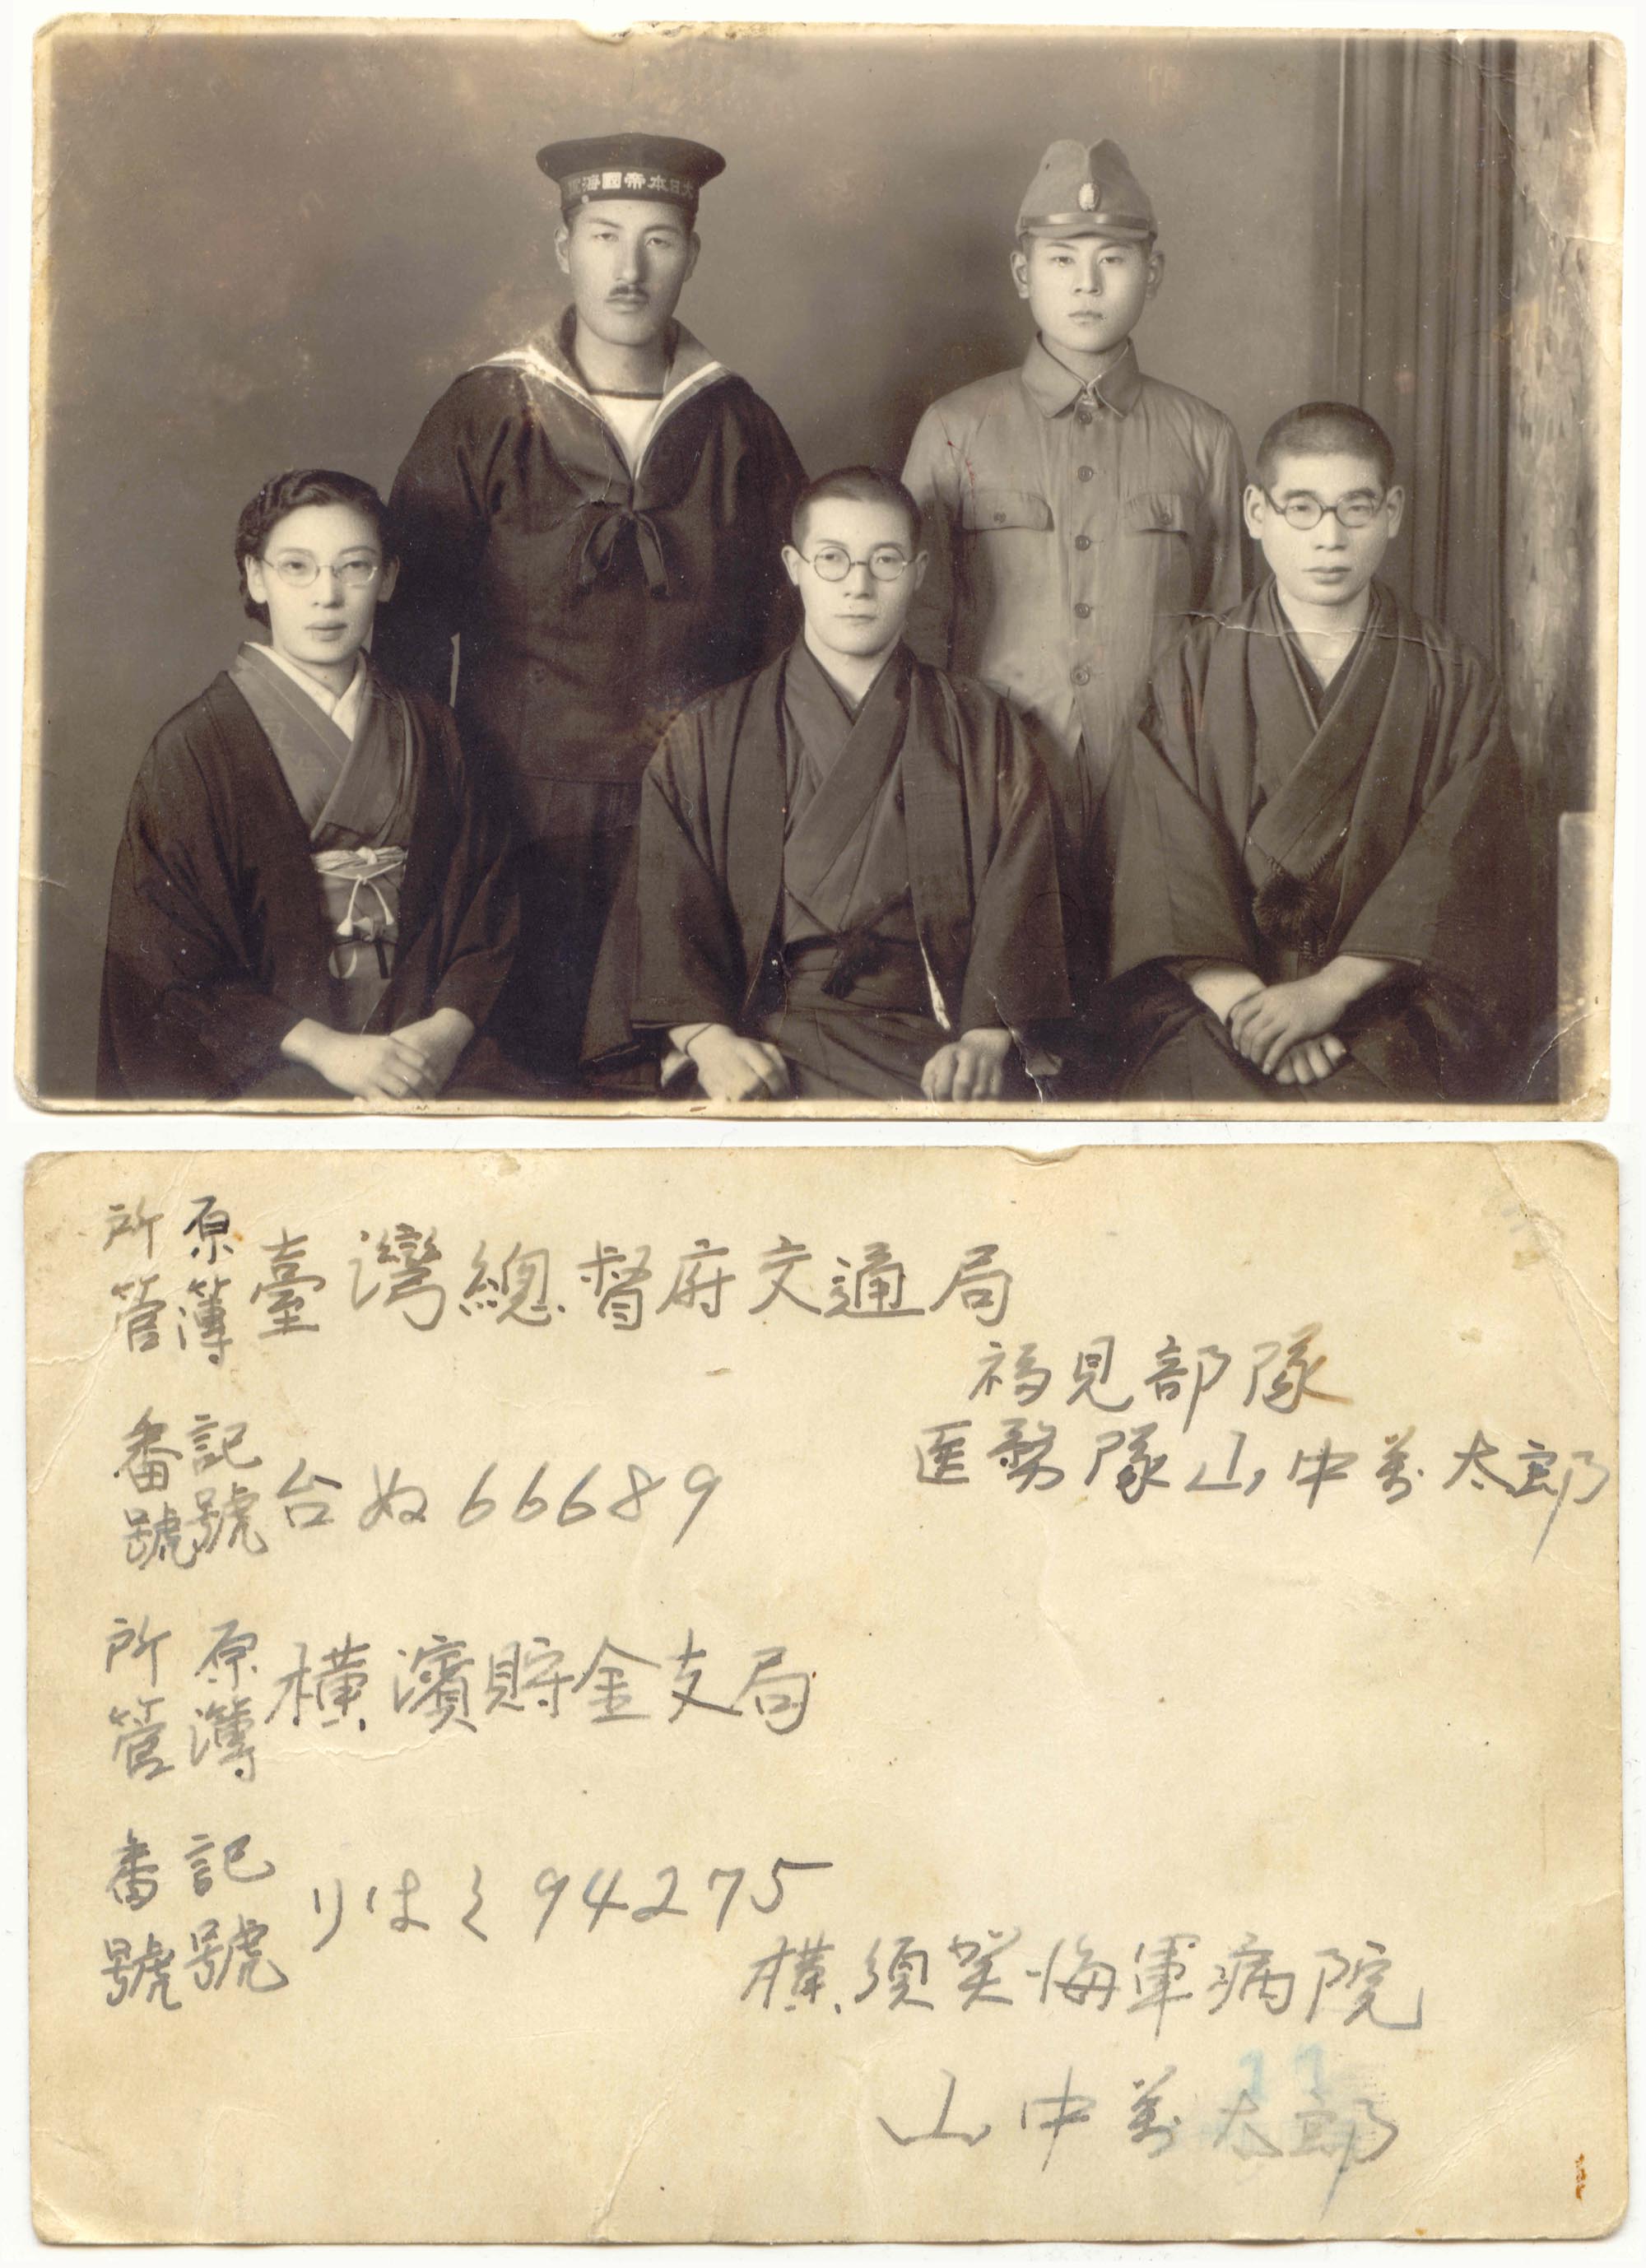 大日本帝國海軍
原簿所管 臺灣總督府交通局
福見部隊
医務隊山中萬太郎
記號番號 台ぬ66689
原簿所管 横濱貯金支局
記號番號 りはく94275
横須賀海軍病院
山中萬太郎